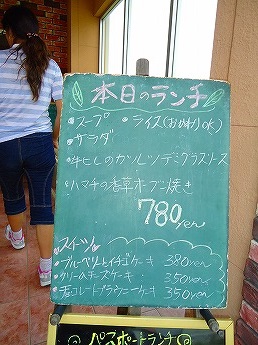 本日のランチ
・スープ ・ライス(おかわりOK)
・サラダ
・牛ヒレのカツレツデミグラスソース
・ハマチの香草オーブン焼き
780yen
スイーツ
・ブルーベリーとイチゴケーキ 380yen
・クリームチーズケーキ 350yen
・チョコレートブラウニーケーキ 350yen
パスポートランチ